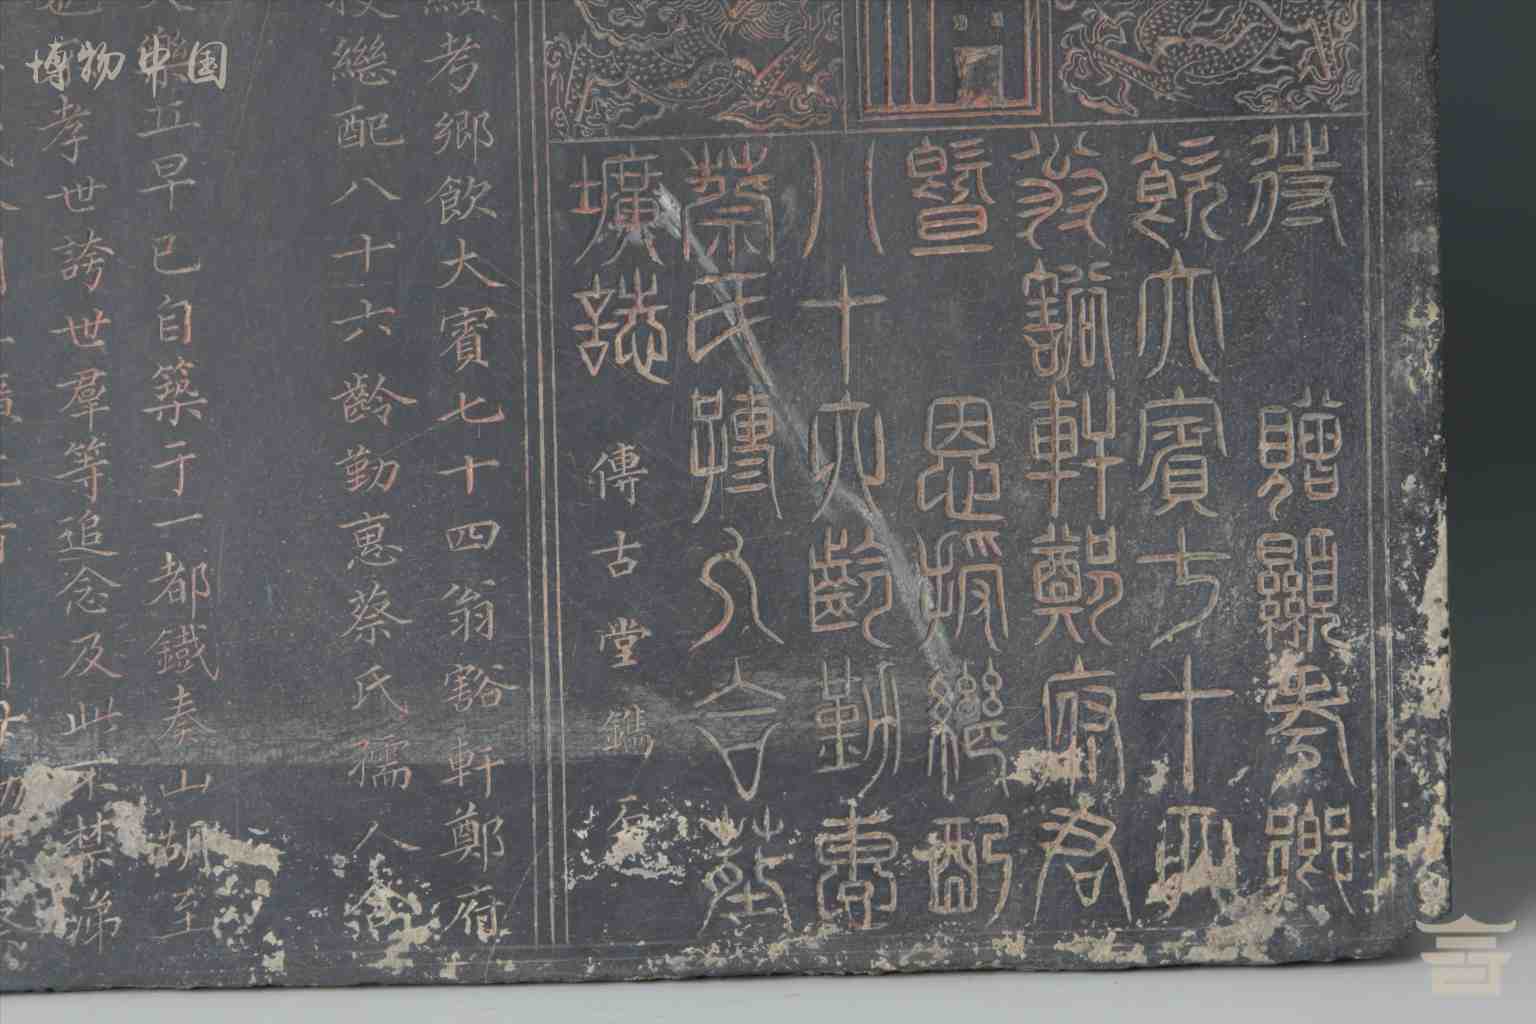 待贈顯考鄉
飲大賓七十四
翁谿軒鄭府君
暨恩授繼配
八十六齡勤惠
蔡氏孺人合葬
壙誌 傳古堂鐫石
顯考鄉飲大賓七十四翁谿軒鄭府
授繼配八十六齡勤惠蔡氏孺人合
丘早已自築于一都鐵奏山湖至
孝世誇世羣等追念及此不禁涕
博物中国